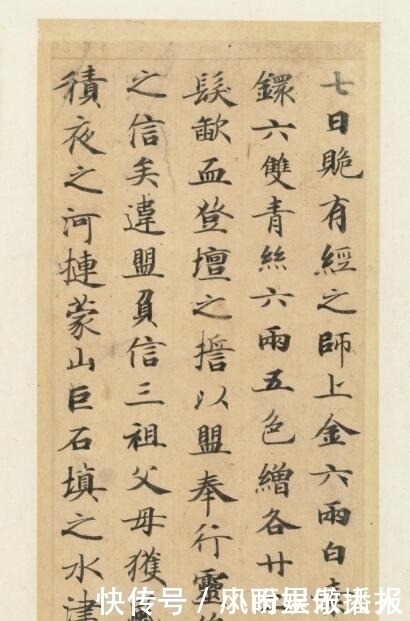 七日脆有經之師上金六兩白
鐶六雙青絲六兩五色繒各廿
髮歃血登壇之擔以盟奉行靈
之信矣違盟負信三祖父母獲
積夜之河摙蒙山巨石填之水津
快传号／
播报